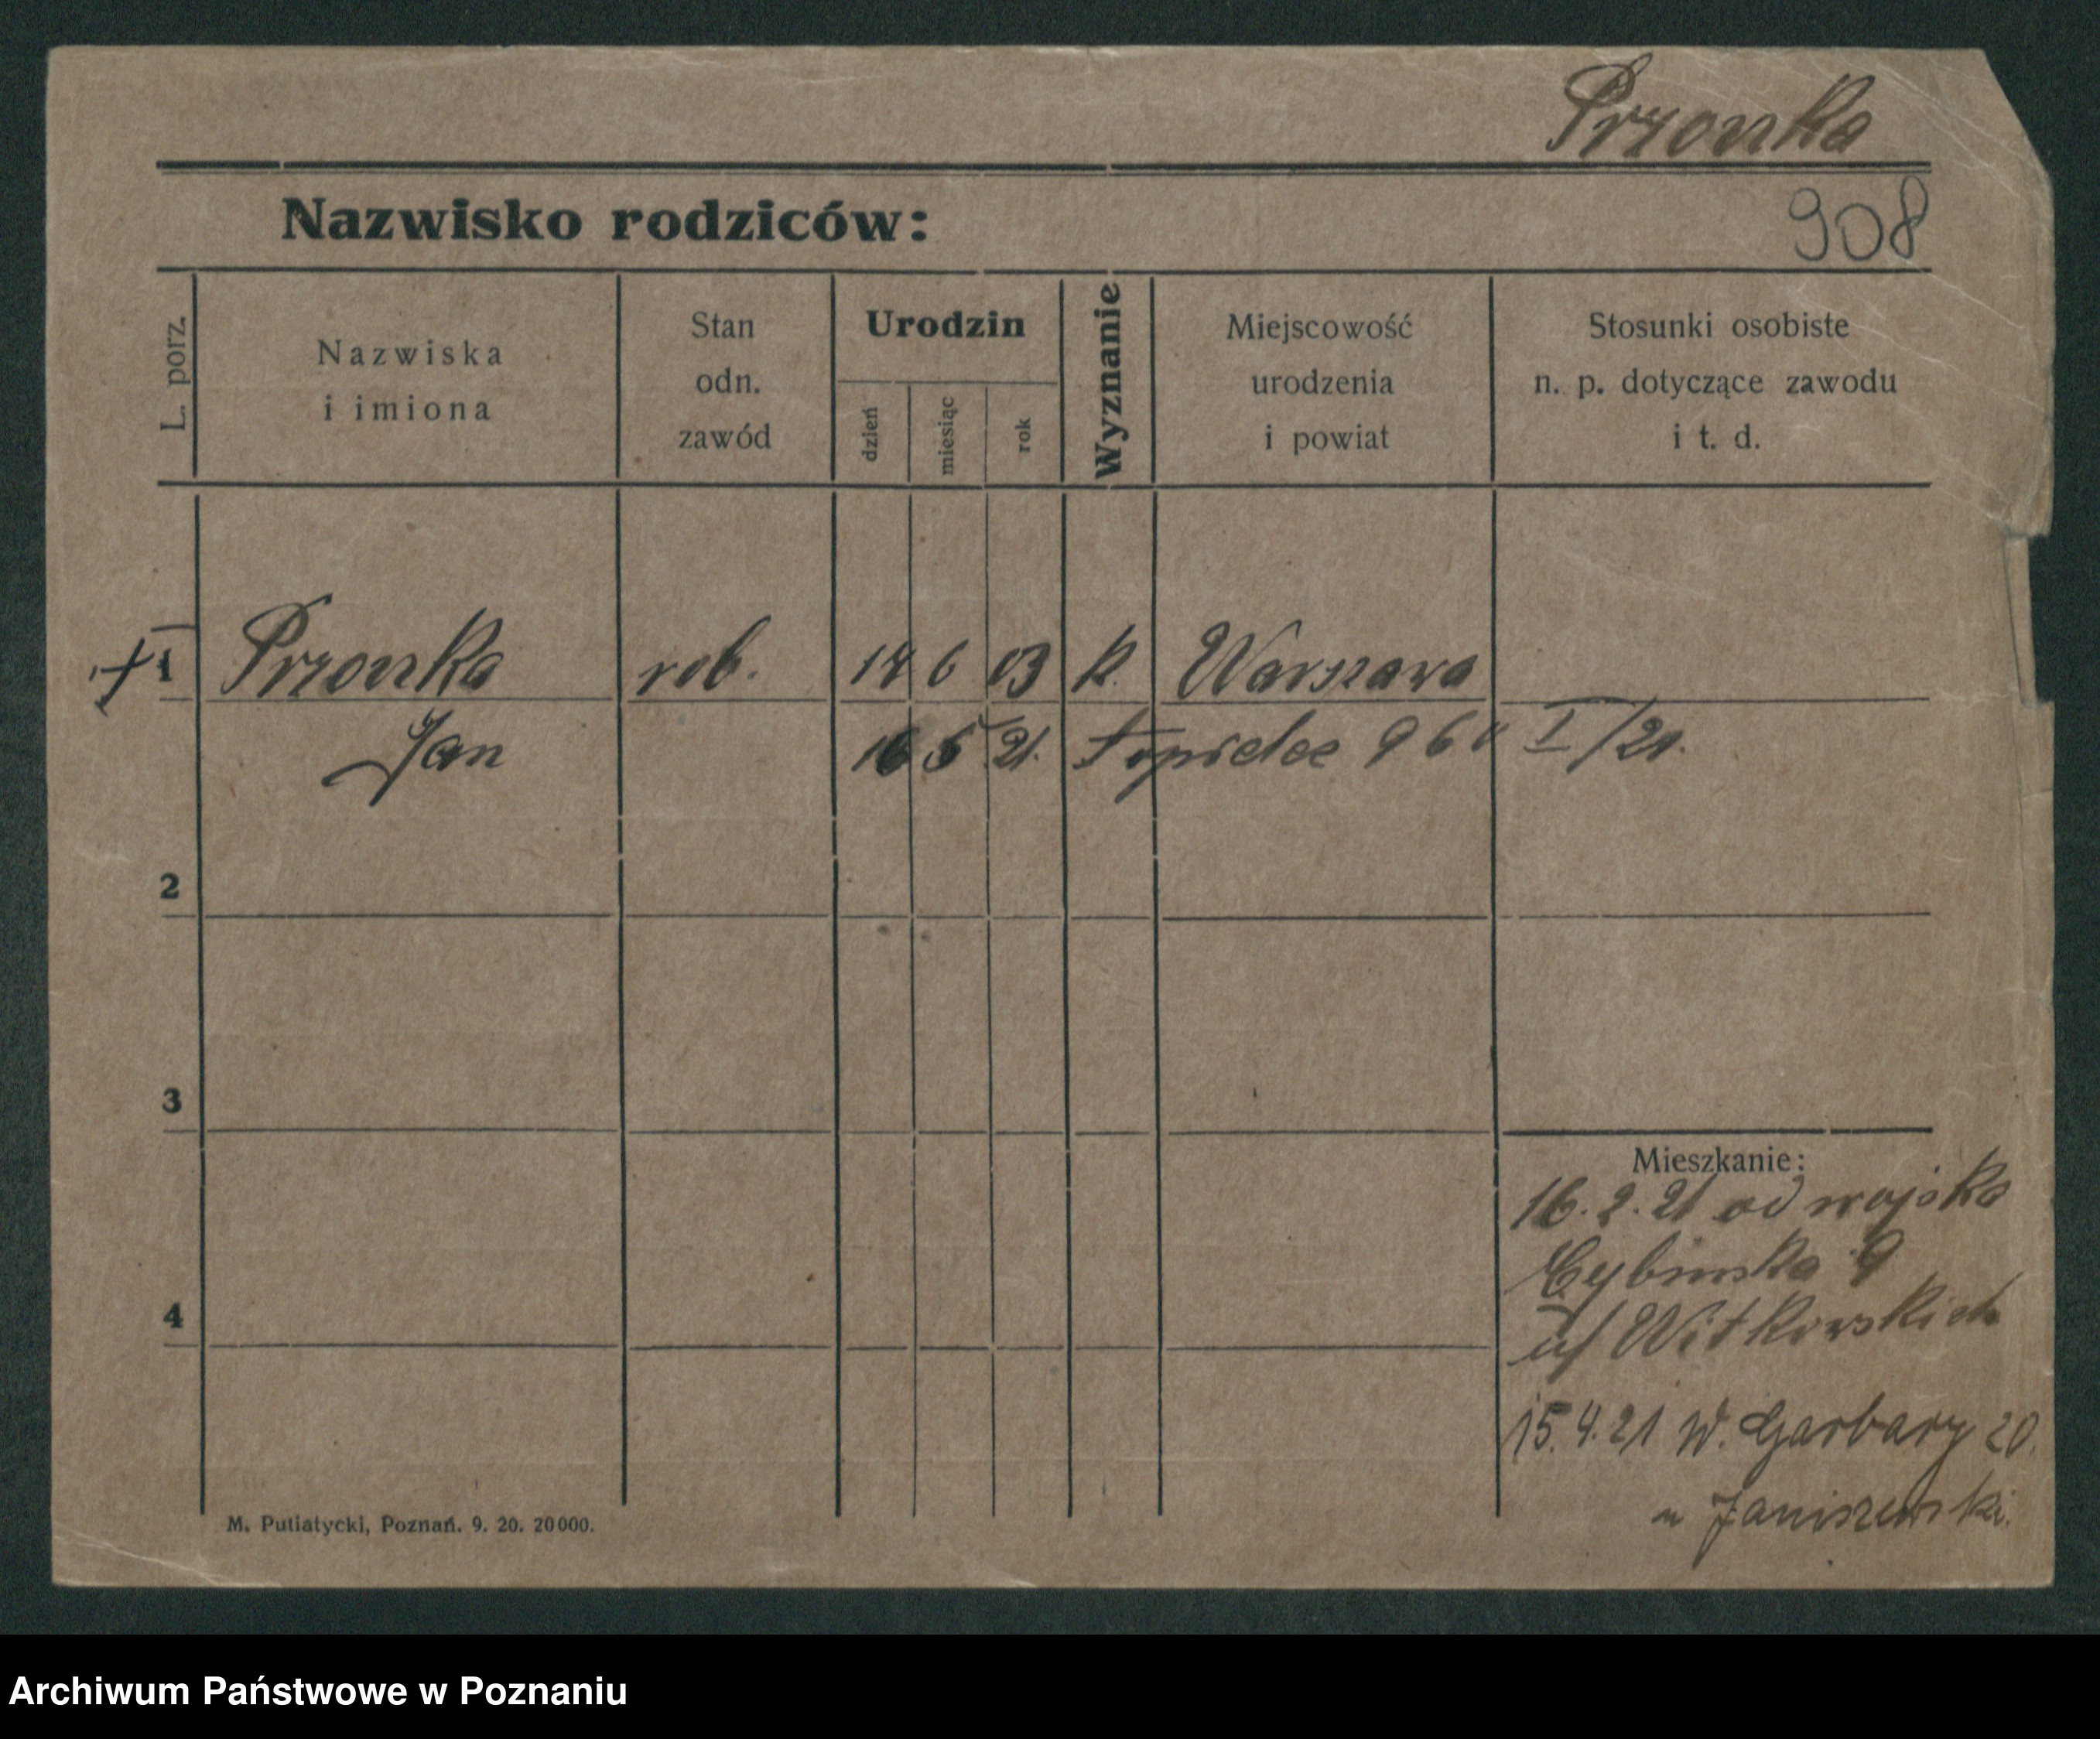 Przonka
Nazwisko rodziców:
908
L. porz.
Nazwiska
i imiona
Stan
odn.
zawód
Urodzin
dzień
miesiąc
rok
Wyznanie
Miejscowość
urodzenia
i powiat
Stosunki osobiste
n. p. dotyczące zawodu
i t. d.
1 Przonka rob. 14 6 03 k. Warszawa
Jan 16 5 21. I/21.
2
3
4
Mieszkanie:
16. 2. 21 od wojska
Cybinska 9
u/ Witkowskich
15. 4. 21 W. Garbary 20.
u Janiszewski.
M. Putiatycki, Poznań. 9. 20. 20000.
Archiwum Państwowe w Poznaniu